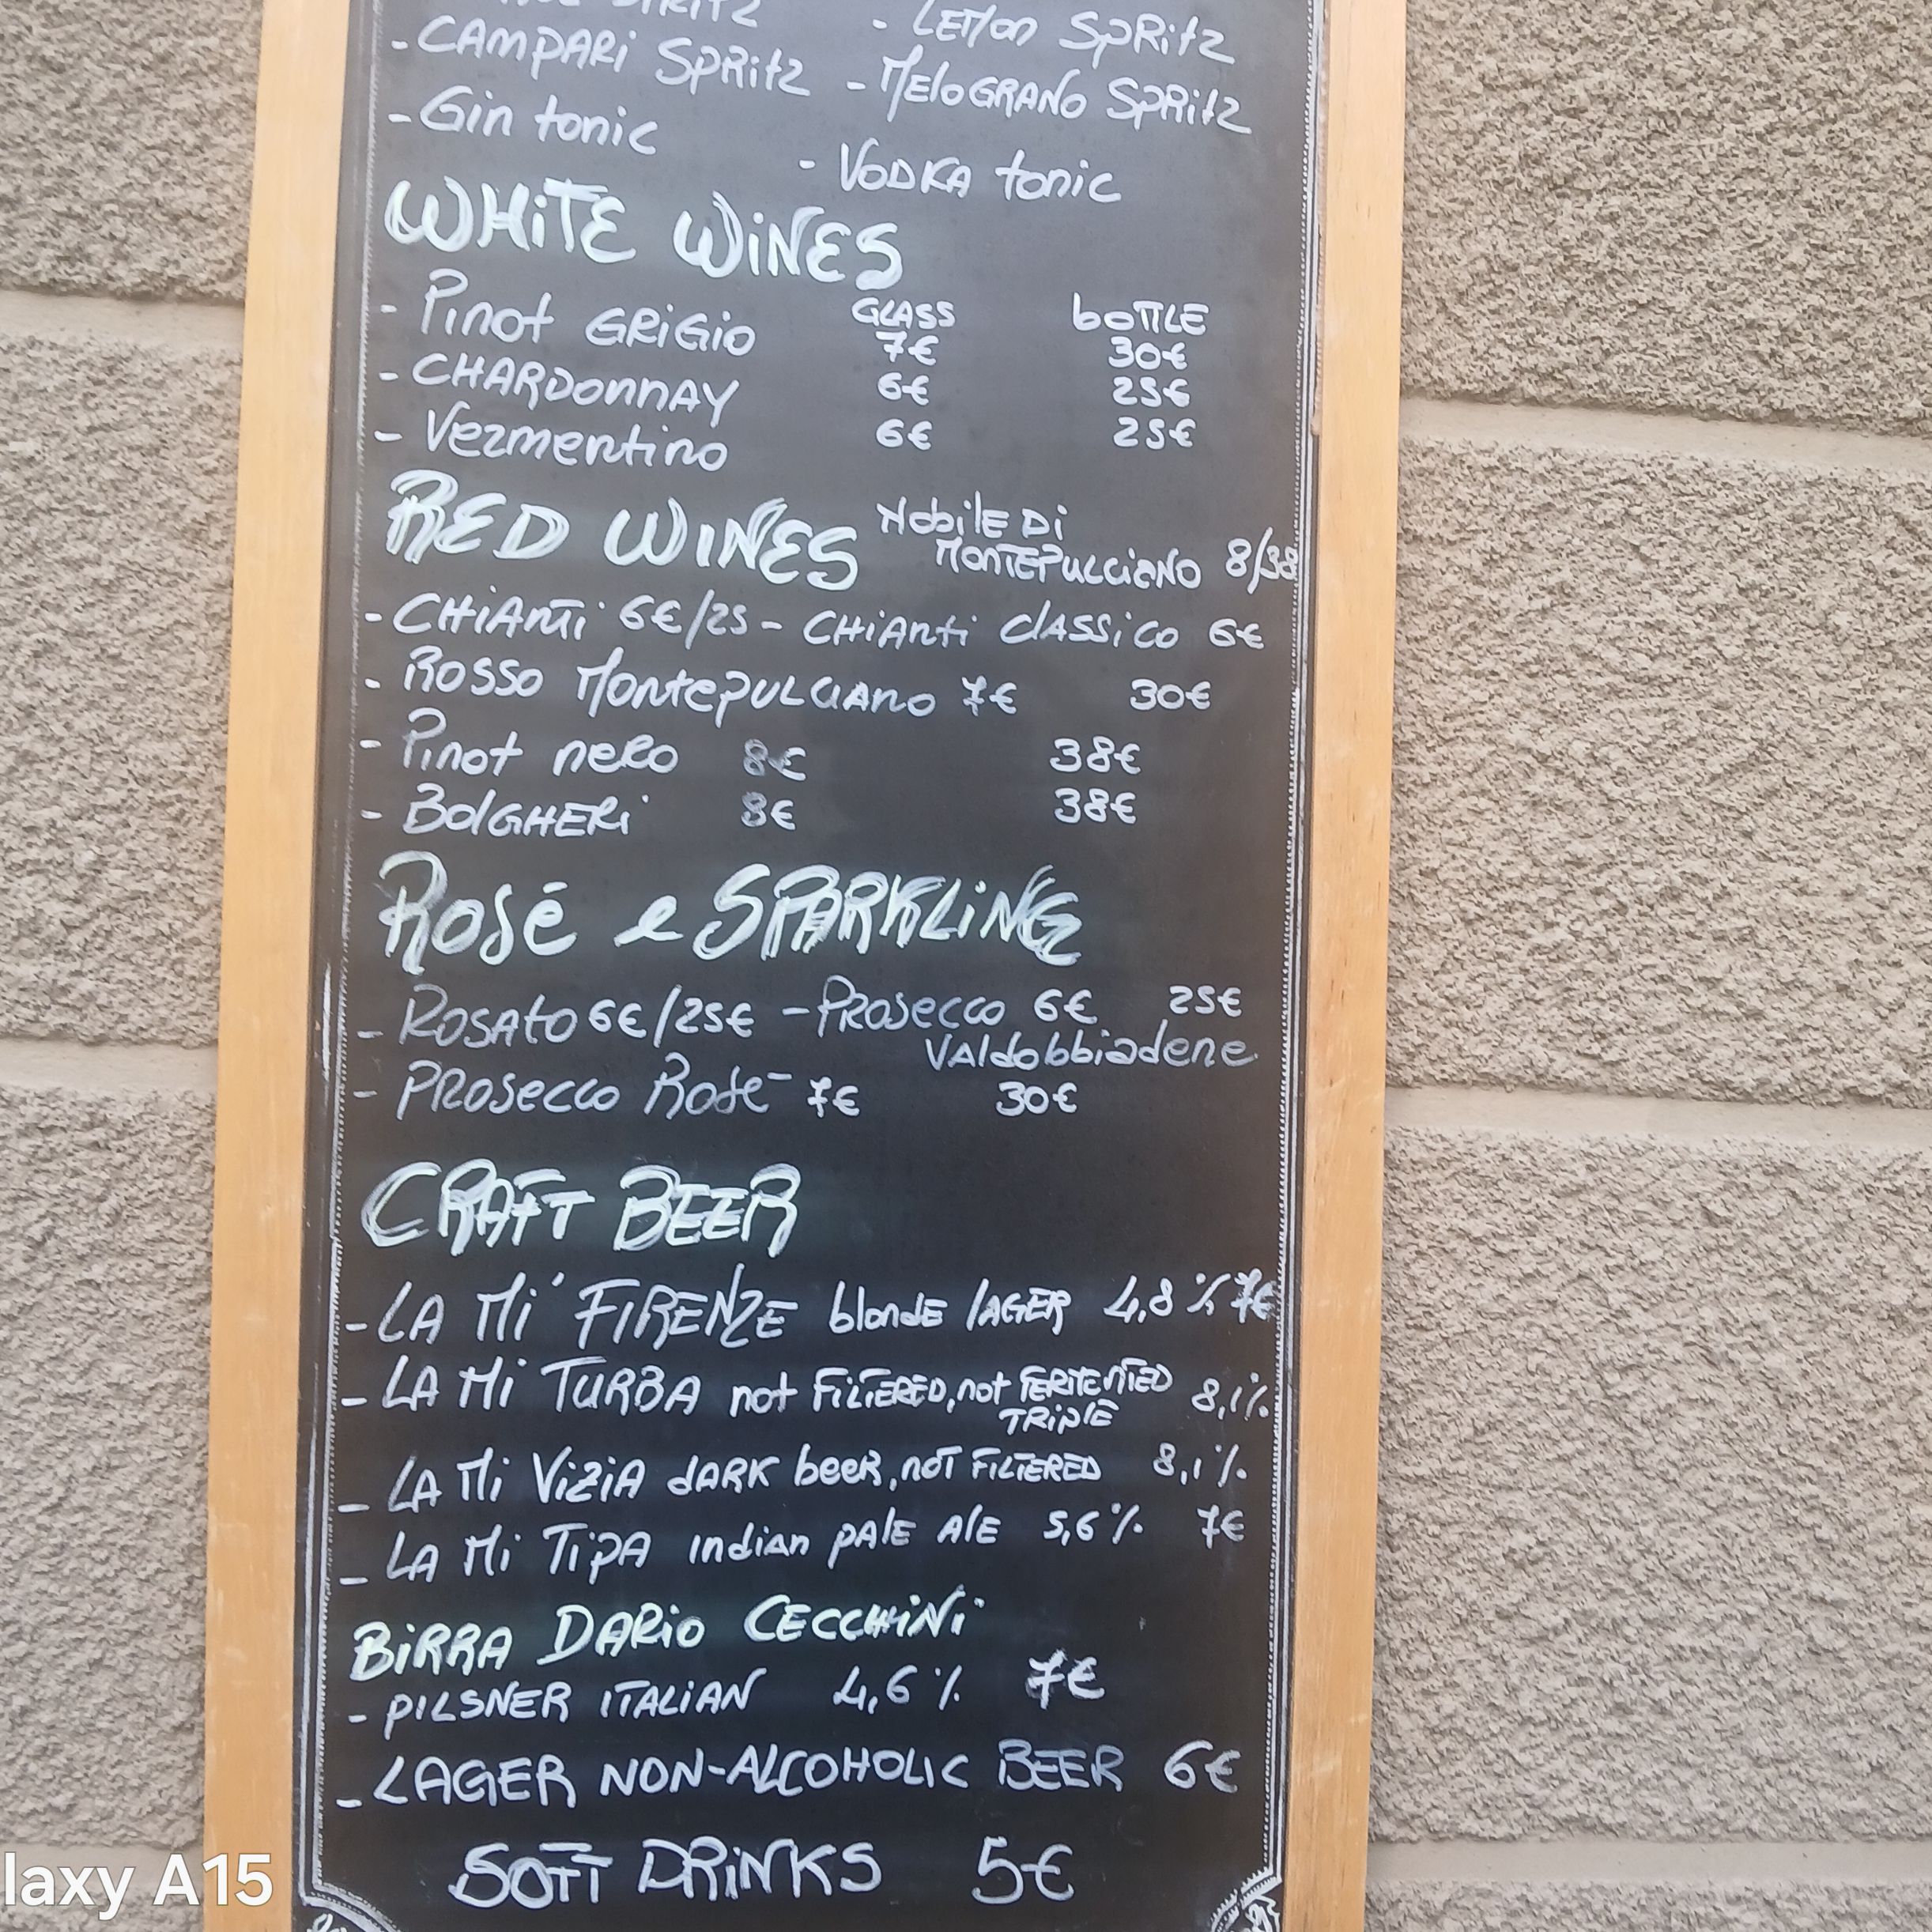 SPRITZ - LEMON SPRitz
- CAMPARi SPRitz - MELOGRANO SPRitz
- Gin tonic - VODKA tonic
WHiTE WiNES
GLASS bOTTLE
- Pinot GRiGio 7€ 30€
- CHARDONNAY 6€ 25€
- Vermentino 6€ 25€
RED WINES NobilE Di
MONTEPULCiANO 8/38
- CHiANTi 6€/25 - CHiANti ClASSiCO 6€
- ROSSO MontepULCiANO 7€ 30€
- Pinot nero 8€ 38€
- BOlGHERi 8€ 38€
Rosé e SPARKLiNG
- ROSAtO 6€/25€ - PROSecco 6€ 25€
VAldobbiadene
- PROSecco Rosé 7€ 30€
CRAFT BEER
- LA Mi' FIRENZE blondE lAGER 4,8% 7€
- LA Mi TURBA not FiLTERED, not FERMENTED 8,1%
TRIPlE
- LA Mi ViZiA dARK beeR, nOT FiLTERED 8,1%
- LA Mi TipA indian pAlE AlE 5,6% 7€
BiRRA DARio CECCHiNi
- PILSNER ITALIAN 4,6% 7€
- LAGER NON-ALCOHOLIC BEER 6€
SOFT DRiNKS 5€
laxy A15